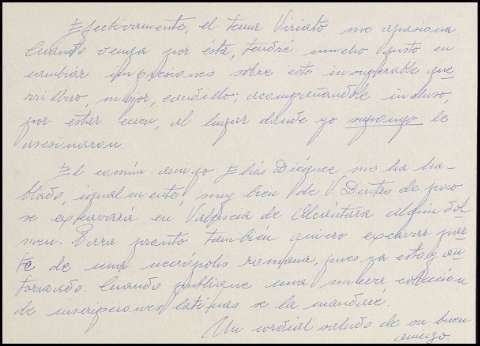 Efectivamente, el tema Viriato me apasiona
Cuando venga por esta, tendré mucho gusto en
cambiar impresiones sobre este insuperable gue
rrillero, mejor, caudillo; acompañandole incluso,
por estar cerca, al lugar donde yo supongo le
asesinaron.
El común amigo Elías Diéguez me ha ha-
blado, igualmente, muy bien de V. Dentro de poco
se excavará en Valencia de Alcántara algún dol
men. Para pronto también quiero excavar par
te de una necrópolis romana, pues ya estoy au
torizado. Cuando publique una nueva colección
de inscripciones latinas se la mandaré.
Un cordial saludo de su buen
amigo.